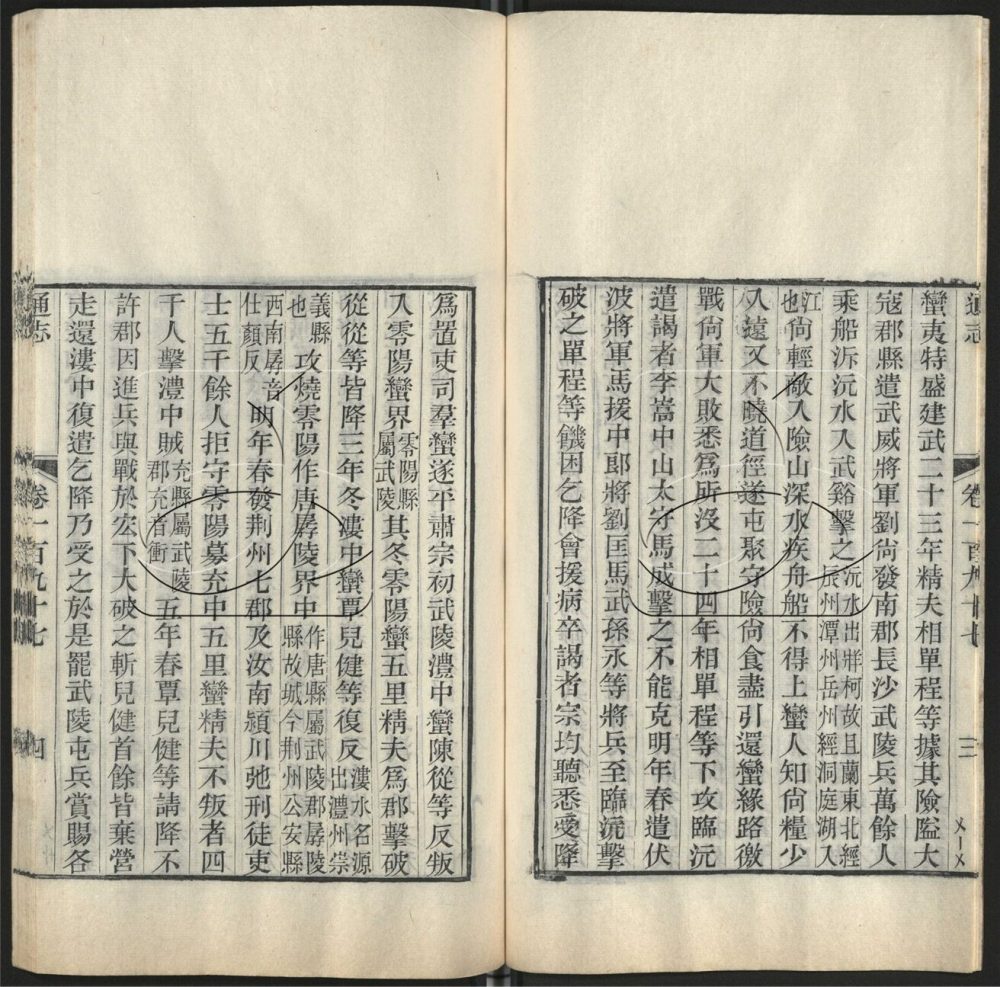 通志
卷一百九十七
三
蠻夷特盛建武二十三年精夫相單程等據其險隘大
寇郡縣遣武威將軍劉尙發南郡長沙武陵兵萬餘人
乘船泝沅水入武谿擊之沅水出牂柯故且蘭東北經辰州潭州岳州經洞庭湖入
江也尙輕敵入險山深水疾舟船不得上蠻人知尙糧少
入遠又不曉道徑遂屯聚守險尙食盡引還蠻緣路徼
戰尙軍大敗悉爲所沒二十四年相單程等下攻臨沅
遣謁者李嵩中山太守馬成擊之不能克明年春遣伏
波將軍馬援中郞將劉匡馬武孫永等將兵至臨沅擊
破之單程等饑困乞降會援病卒謁者宗均聽悉受降
爲置吏司羣蠻遂平肅宗初武陵澧中蠻陳從等反叛
入零陽蠻界零陽縣屬武陵其冬零陽蠻五里精夫爲郡擊破
從從等皆降三年冬漊中蠻覃兒健等復反漊水名源出澧州崇
義縣也攻燒零陽作唐孱陵界中作唐縣屬武陵郡孱陵縣故城今荆州公安縣
西南孱音仕顏反明年春發荆州七郡及汝南潁川弛刑徒吏
士五千餘人拒守零陽募充中五里蠻精夫不叛者四
千人擊澧中賊充縣屬武陵郡充者衝五年春覃兒健等請降不
許郡因進兵與戰於宏下大破之斬兒健首餘皆棄營
走還漊中復遣乞降乃受之於是罷武陵屯兵賞賜各
通志
卷一百九十七
四